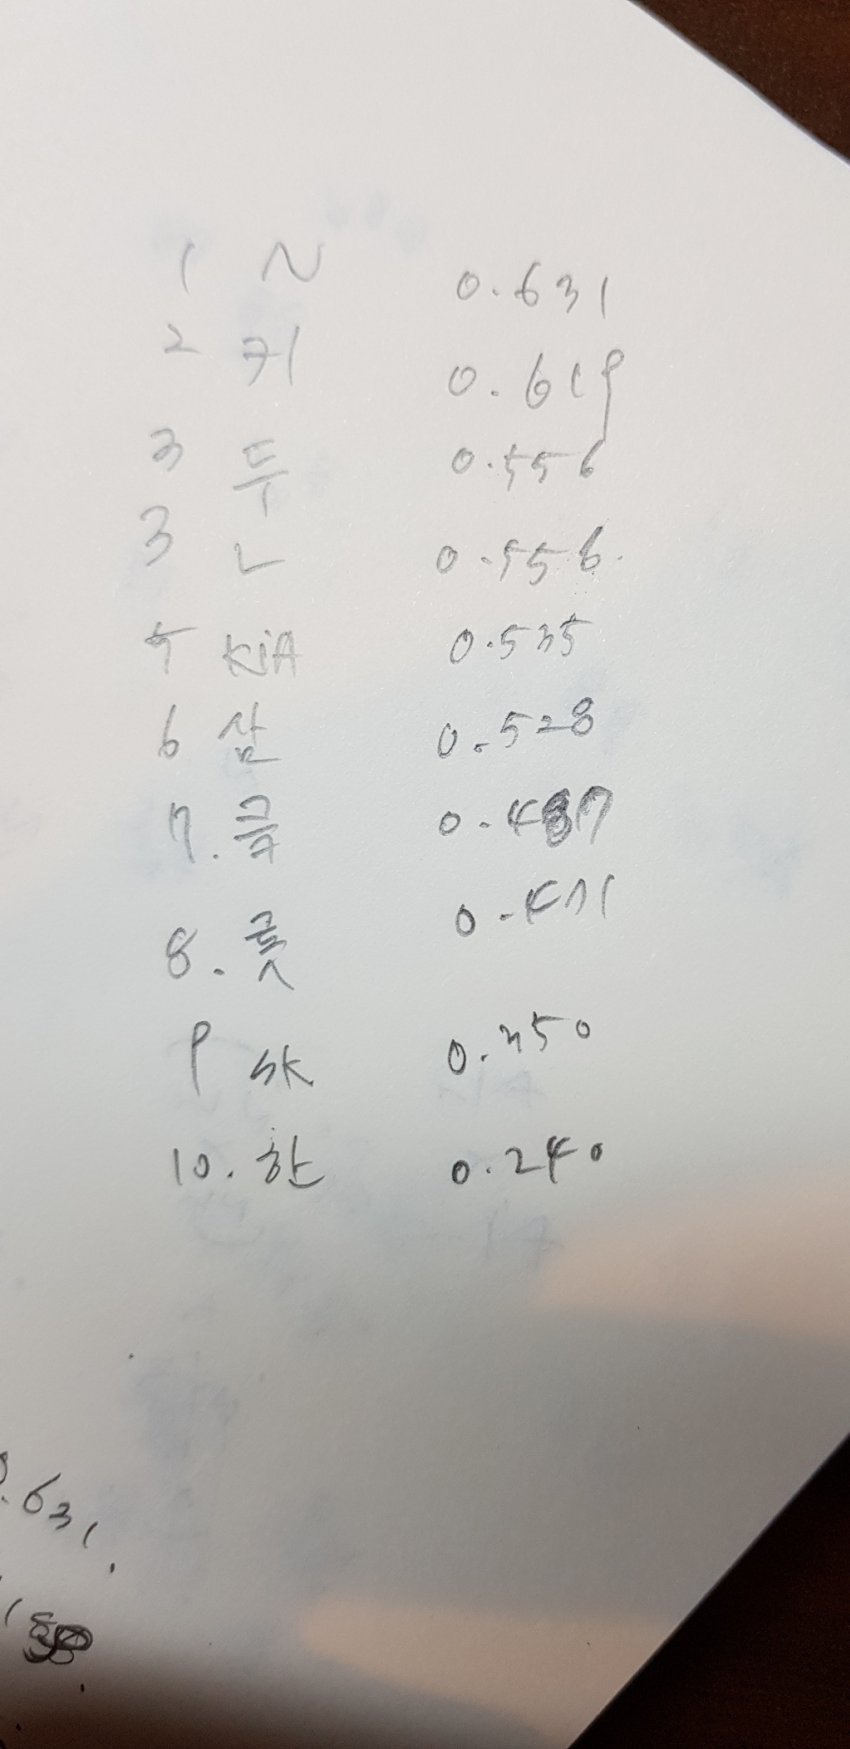 1 N 0.631
2 키 0.619
3 두 0.556
3 L 0.556.
5 KiA 0.535
6 삼 0.528
7. 크 0.487
8. 롯 0.471
9 SK 0.350
10. 한 0.240
0.631